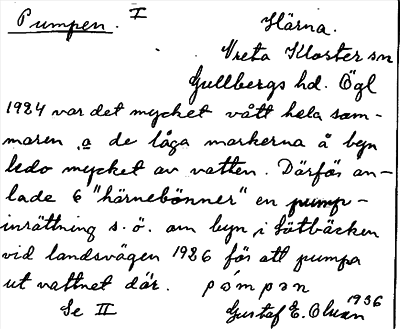 Pumpen. I
Härna.
Vreta Kloster sn
Gullbergs hd. Ögl
1924 var det mycket vått hela som-
maren, a de låga markerna å byn
ledo mycket av vatten. Därför an-
lade 6 "härnebönner" en pump-
inrättning s.ö. om byn, i Lötbäcken
vid landsvägen 1926 för att pumpa
ut vattnet där. pómpən
Se II
Gustaf E. Olsson 1936